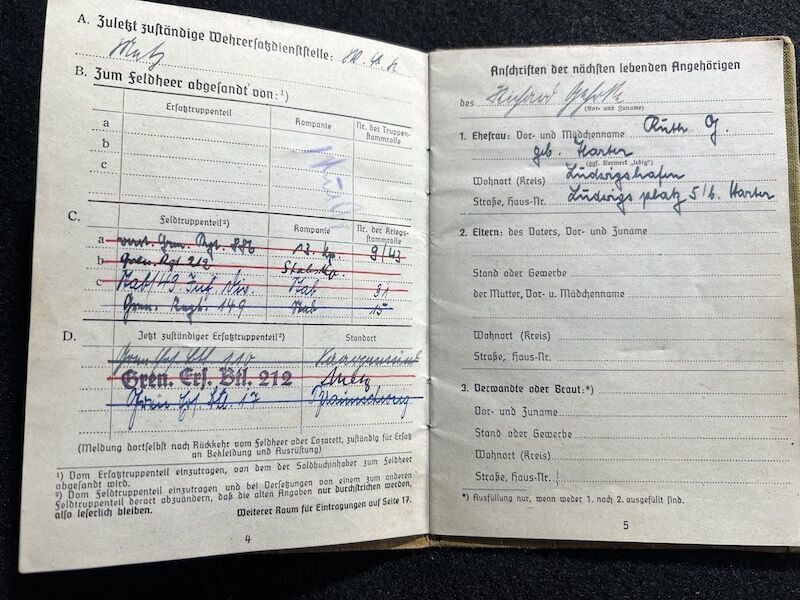 A. Zuletzt zuständige Wehrersatzdienststelle:
Metz
B. Zum Feldheer abgesandt von:¹)
Ersatztruppenteil
Kompanie
Nr. der Truppen-
stammrolle
a
b
c
C.
Feldtruppenteil²)
Kompanie
Nr. der Kriegs-
stammrolle
a verst. Gren. Rgt. 13. Kp. 9/43
b Gren. Rgt 212 Stabskp.
c Stab/49. Inf. Div. Stab 31
Gren. Regt. 149 Stab 15
D.
Jetzt zuständiger Ersatztruppenteil²)
Standort
Gren. Ers. Btl. 110 Saargemünd
Gren. Ers. Btl. 212 Metz
Gren. Ers. Btl. 17 Braunschweig
(Meldung dortselbst nach Rückkehr vom Feldheer oder Lazarett, zuständig für Ersatz
an Bekleidung und Ausrüstung)
¹) Vom Ersatztruppenteil einzutragen, von dem der Soldbuchinhaber zum Feldheer
abgesandt wird.
²) Vom Feldtruppenteil einzutragen und bei Versetzungen von einem zum anderen
Feldtruppenteil derart abzuändern, daß die alten Angaben nur durchstrichen werden,
also leserlich bleiben.
Weiterer Raum für Eintragungen auf Seite 17.
4
Anschriften der nächsten lebenden Angehörigen
des Richard
(Vor- und Zuname)
1. Ehefrau: Vor- und Mädchenname Ruth G.
geb. Harter
(ggf. Vermerk „ledig")
Wohnort (Kreis) Ludwigshafen
Straße, Haus-Nr. Ludwigsplatz 5/b. Harter
2. Eltern: des Vaters, Vor- und Zuname
Stand oder Gewerbe
der Mutter, Vor- u. Mädchenname
Wohnort (Kreis)
Straße, Haus-Nr.
3. Verwandte oder Braut:*)
Vor- und Zuname
Stand oder Gewerbe
Wohnort (Kreis)
Straße, Haus-Nr.
*) Ausfüllung nur, wenn weder 1. noch 2. ausgefüllt sind.
5